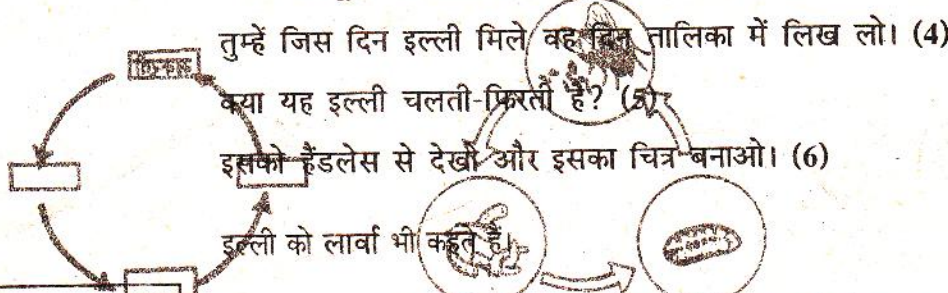 तुम्हें जिस दिन इल्ली मिले वह दिन तालिका में लिख लो। (4)
क्या यह इल्ली चलती-फिरती है? (5)
इसको हैंडलेस से देखो और इसका चित्र बनाओ। (6)
इल्ली को लार्वा भी कहते हैं।